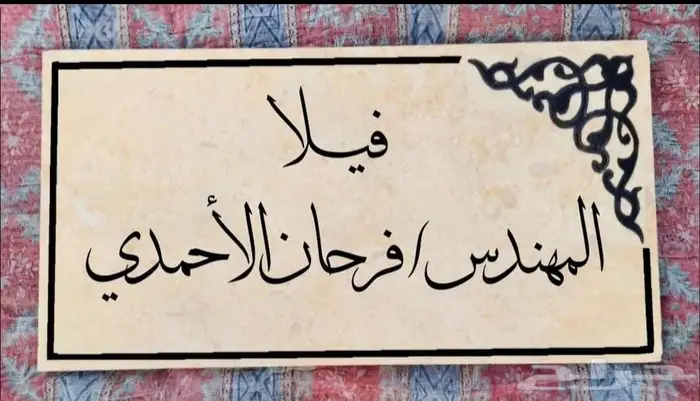 فيلا
المهندس / فرحان الأحمدي
حراج